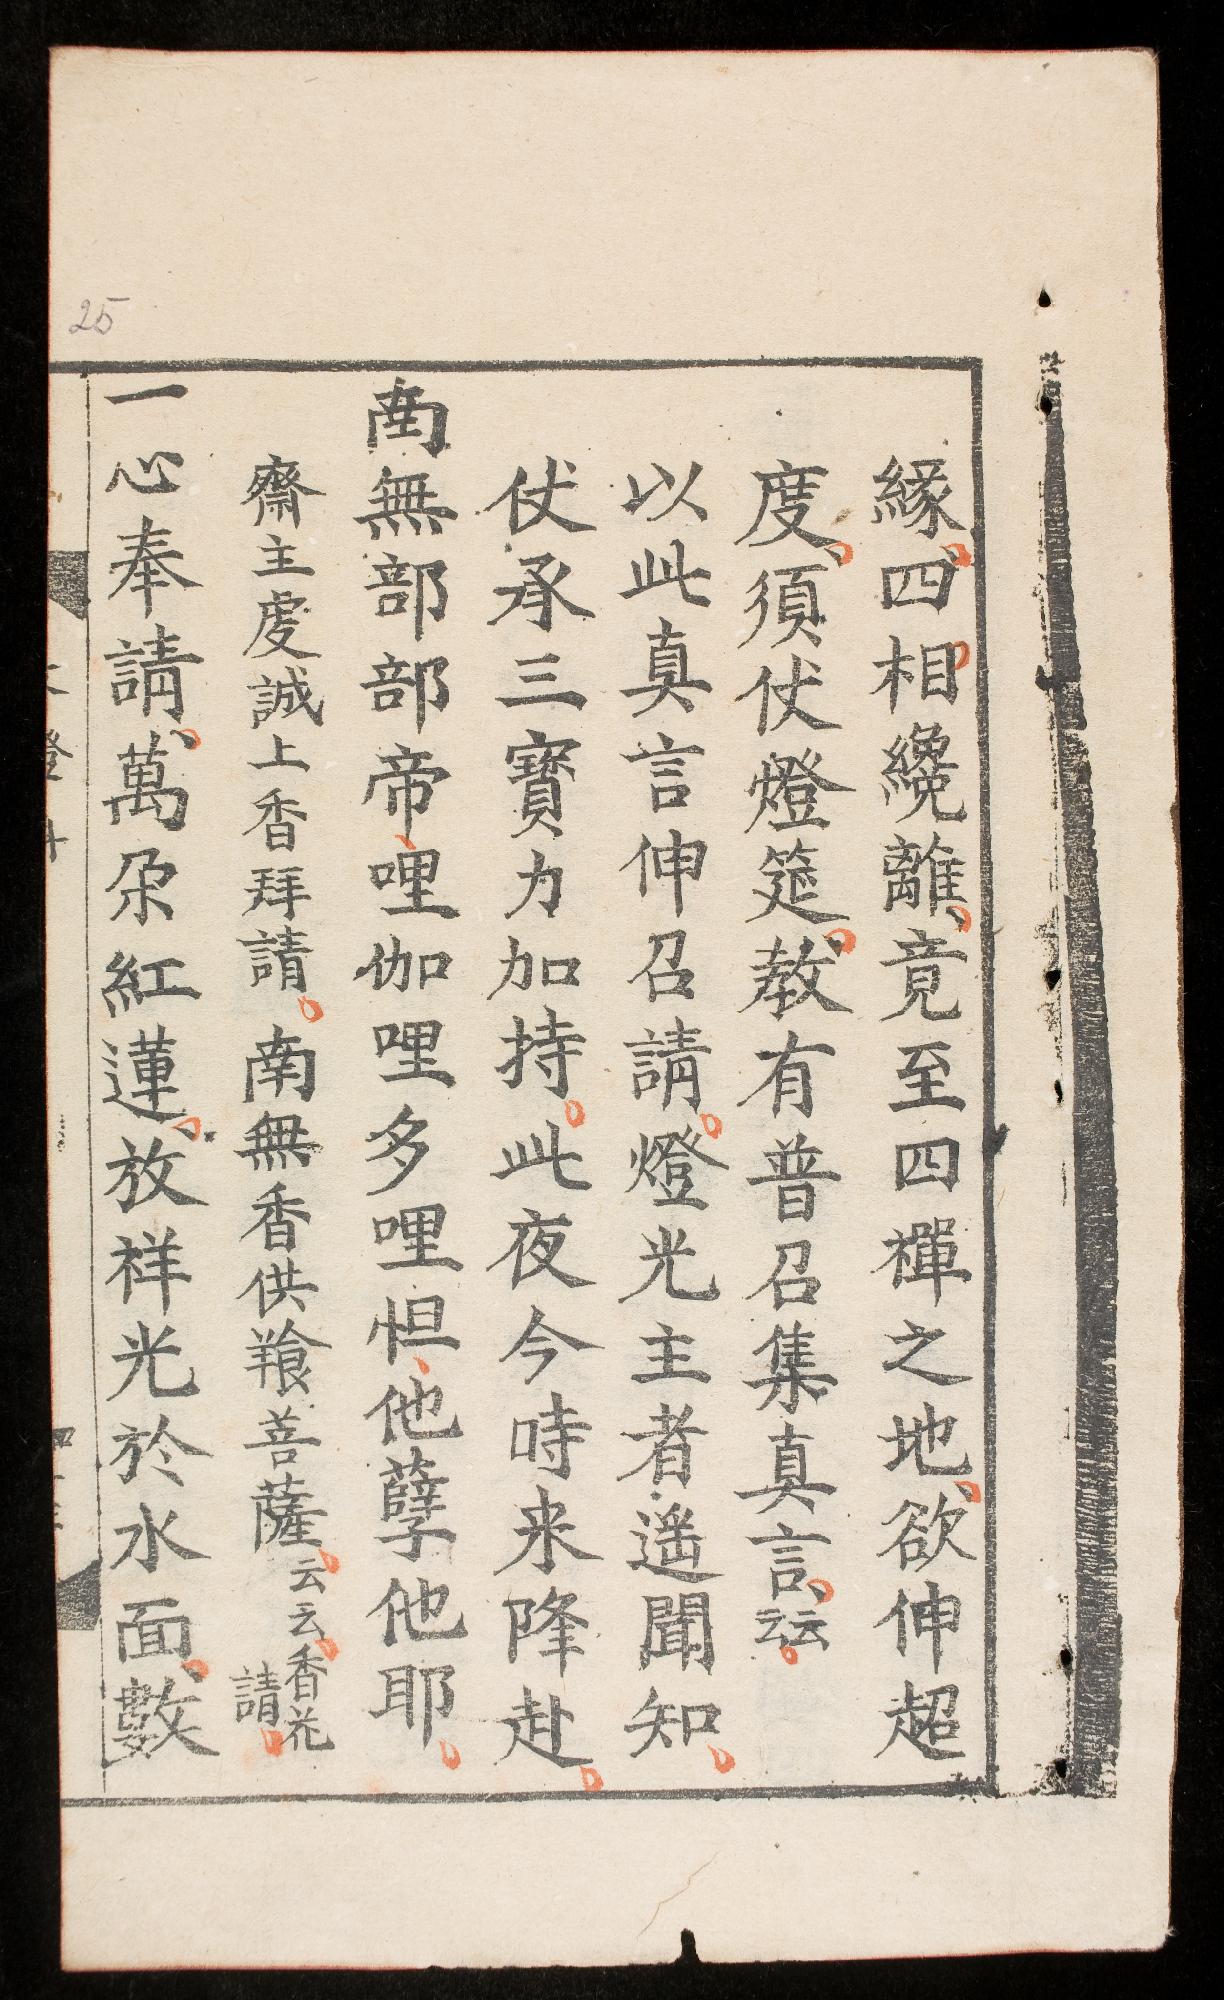 緣、四相纔離、竟至四禪之地、欲伸超
度、須仗燈筵、教有普召集真言、云云。
以此真言伸召請。燈光主者遥聞知。
仗承三寶力加持。此夜今時来降赴。
南無部部帝、哩伽哩多哩怛、他孽他耶。
齋主虔誠上香拜請。南無香供養菩薩、云云、香花請。
一心奉請、萬朶紅蓮、放祥光於水面、數
25